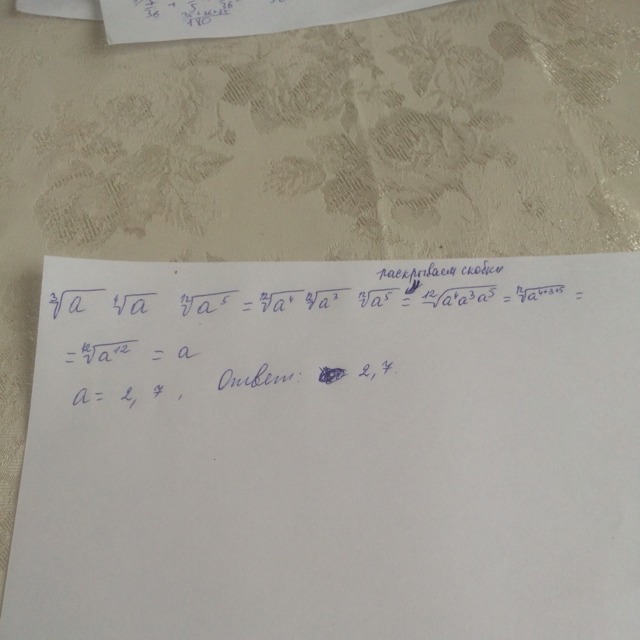 раскрываем скобки
∛a ∜a ¹²√a⁵ = ¹²√a⁴ ¹²√a³ ¹²√a⁵ = ¹²√a⁴a³a⁵ = ¹²√a⁴⁺³⁺⁵ =
= ¹²√a¹² = a
a = 2,7, Ответ: 2,7.